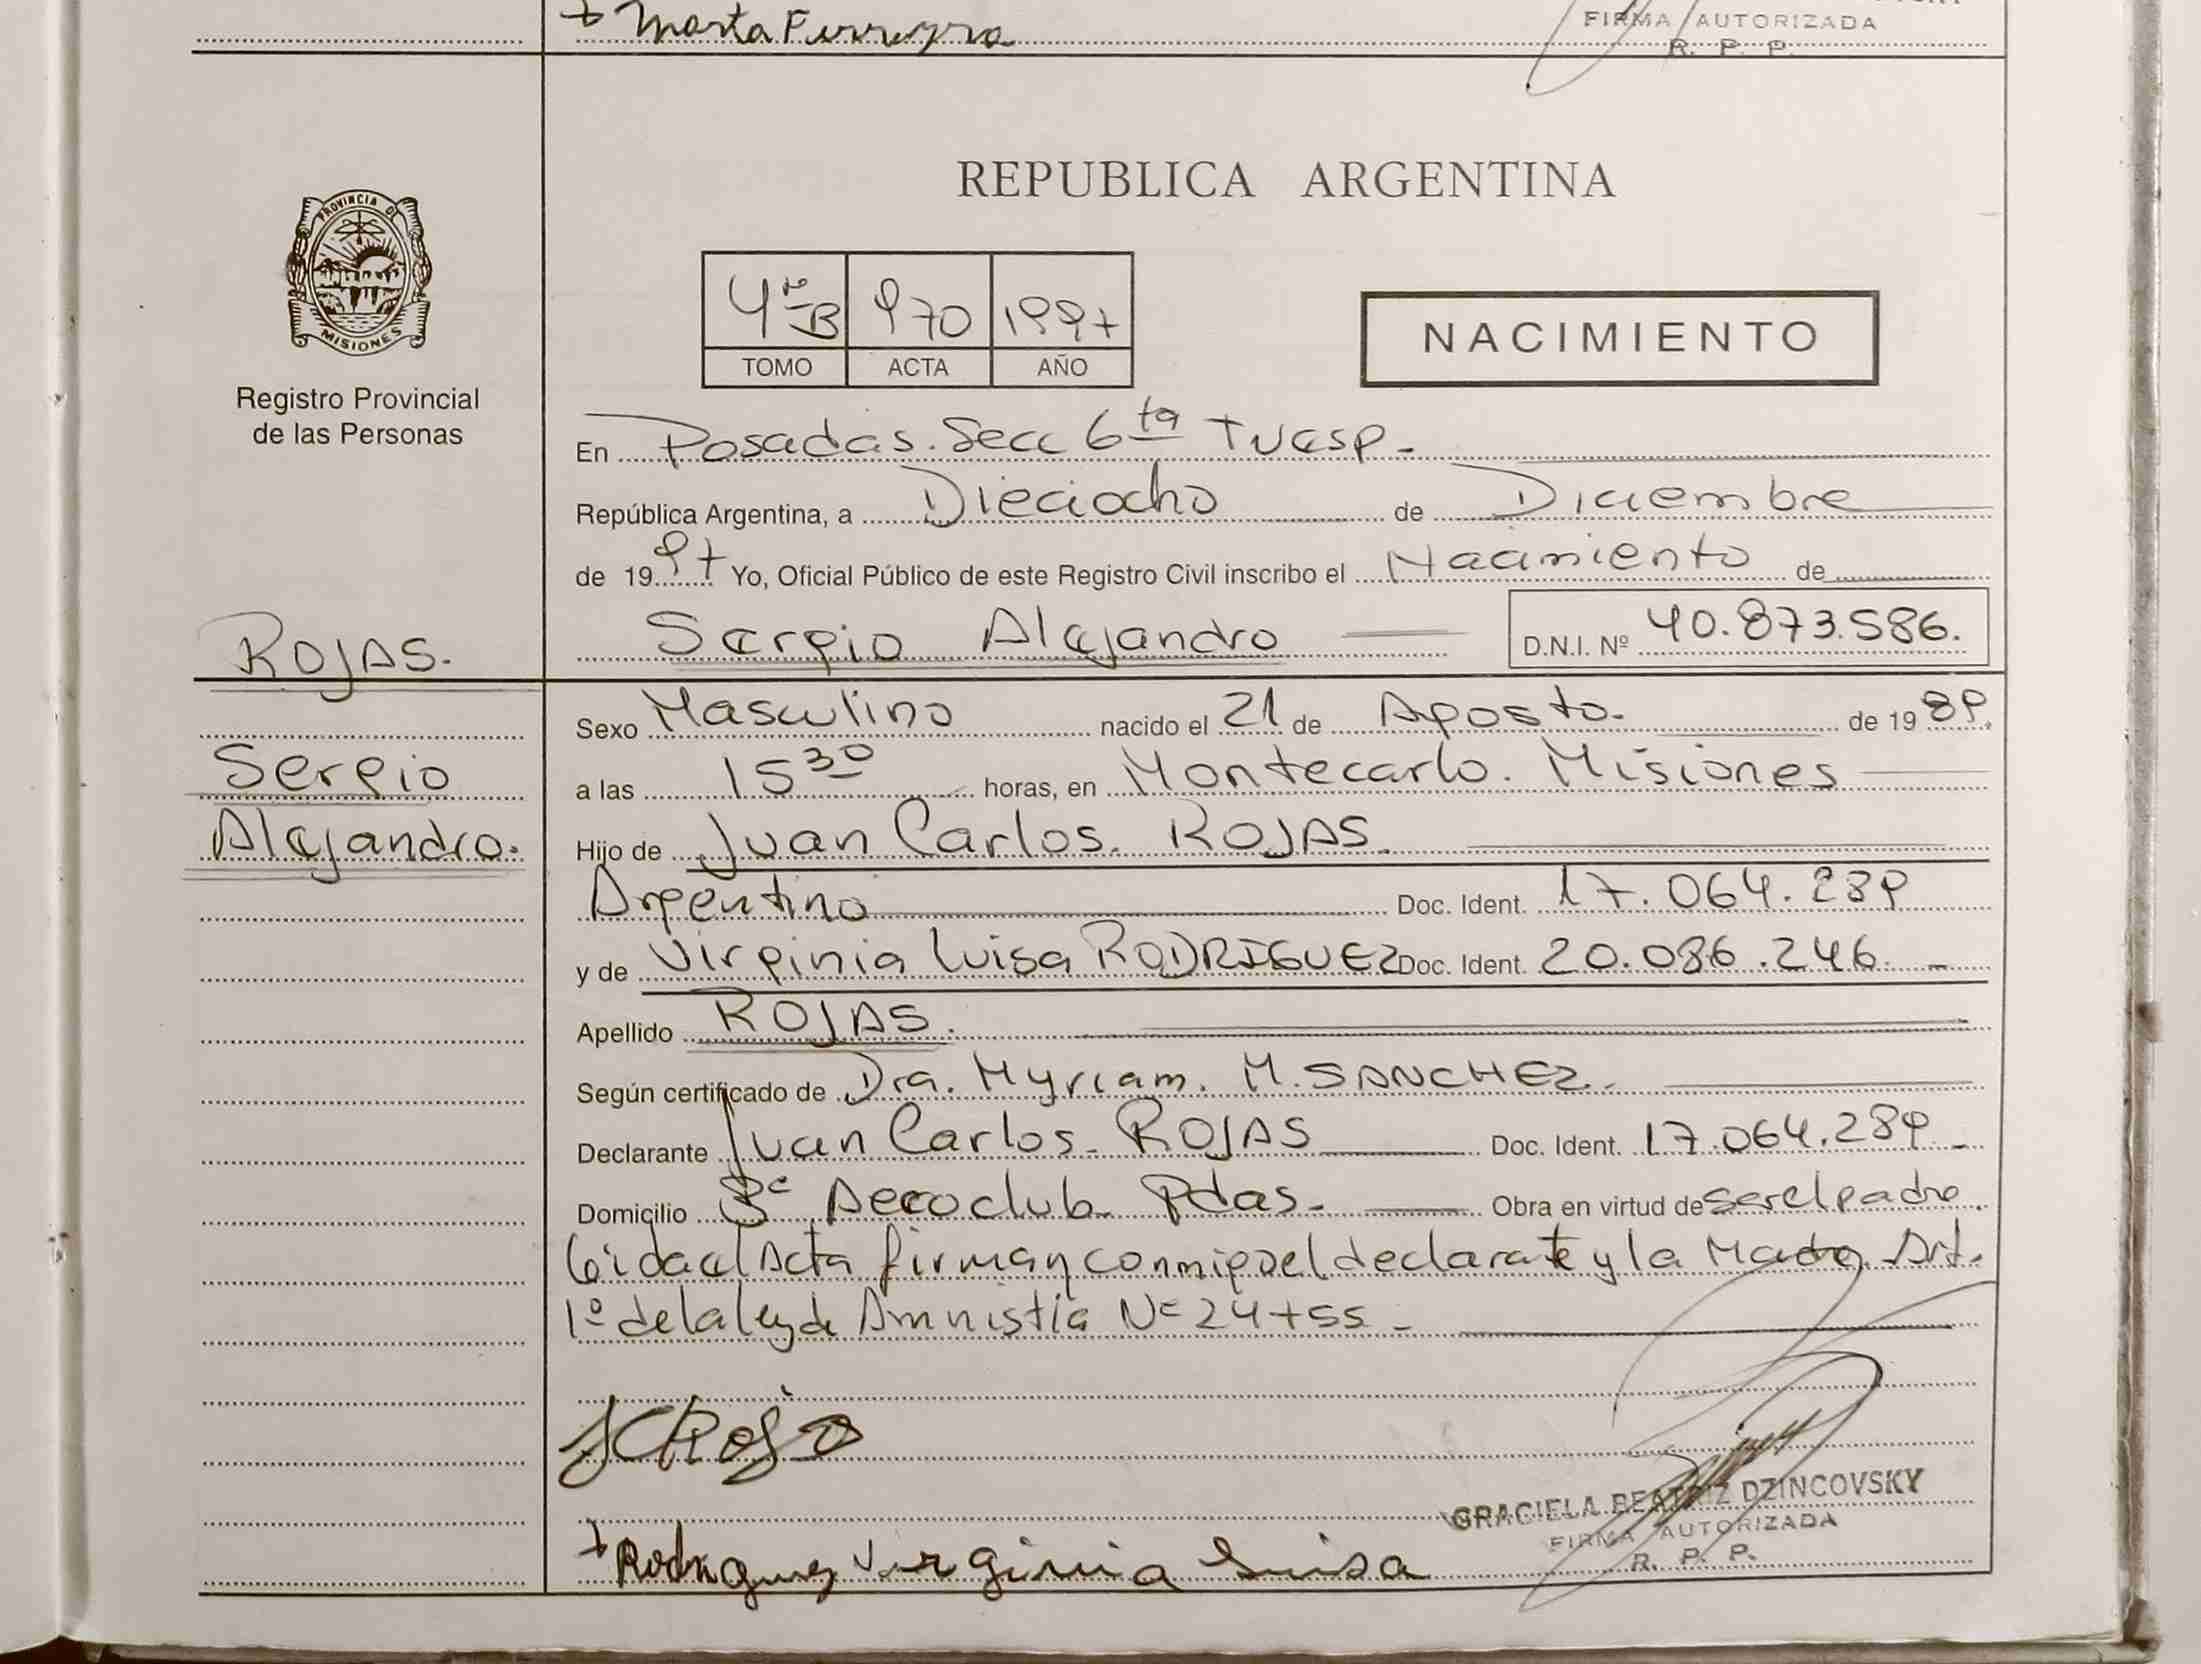 + Marta Ferreyra
FIRMA AUTORIZADA
R. P. P.
PROVINCIA DE
MISIONES
Registro Provincial
de las Personas
REPUBLICA ARGENTINA
970 1997
TOMO ACTA AÑO
NACIMIENTO
En Posadas. Secc 6ta
República Argentina, a Dieciocho de Diciembre
de 1997 Yo, Oficial Público de este Registro Civil inscribo el Nacimiento de
Sergio Alejandro D.N.I. Nº 40.873.586.
ROJAS.
Sergio
Alejandro.
Sexo Masculino nacido el 21 de Agosto. de 1989.
a las 15 30 horas, en Montecarlo. Misiones
Hijo de Juan Carlos. ROJAS.
Argentino Doc. Ident. 17.064.289
y de Virginia Luisa RODRIGUEZ Doc. Ident. 20.086.246. -
Apellido ROJAS.
Según certificado de Dra. Myriam. M. SANCHEZ.
Declarante Juan Carlos. ROJAS Doc. Ident. 17.064.289 -
Domicilio Bº Aeroclub. Pdas. - Obra en virtud de ser el padre.
Leida el Acta firman conmigo el declarante y la Madre. Art.
1º de la ley de Amnistia Nº 24755 -
JCRojas
GRACIELA BEATRIZ DZINCOVSKY
FIRMA AUTORIZADA
R. P. P.
+ Rodriguez Virginia Luisa